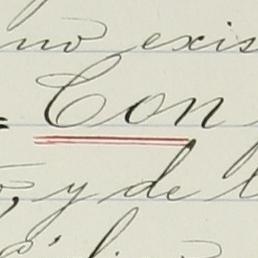 no exis
= Con
, y de l